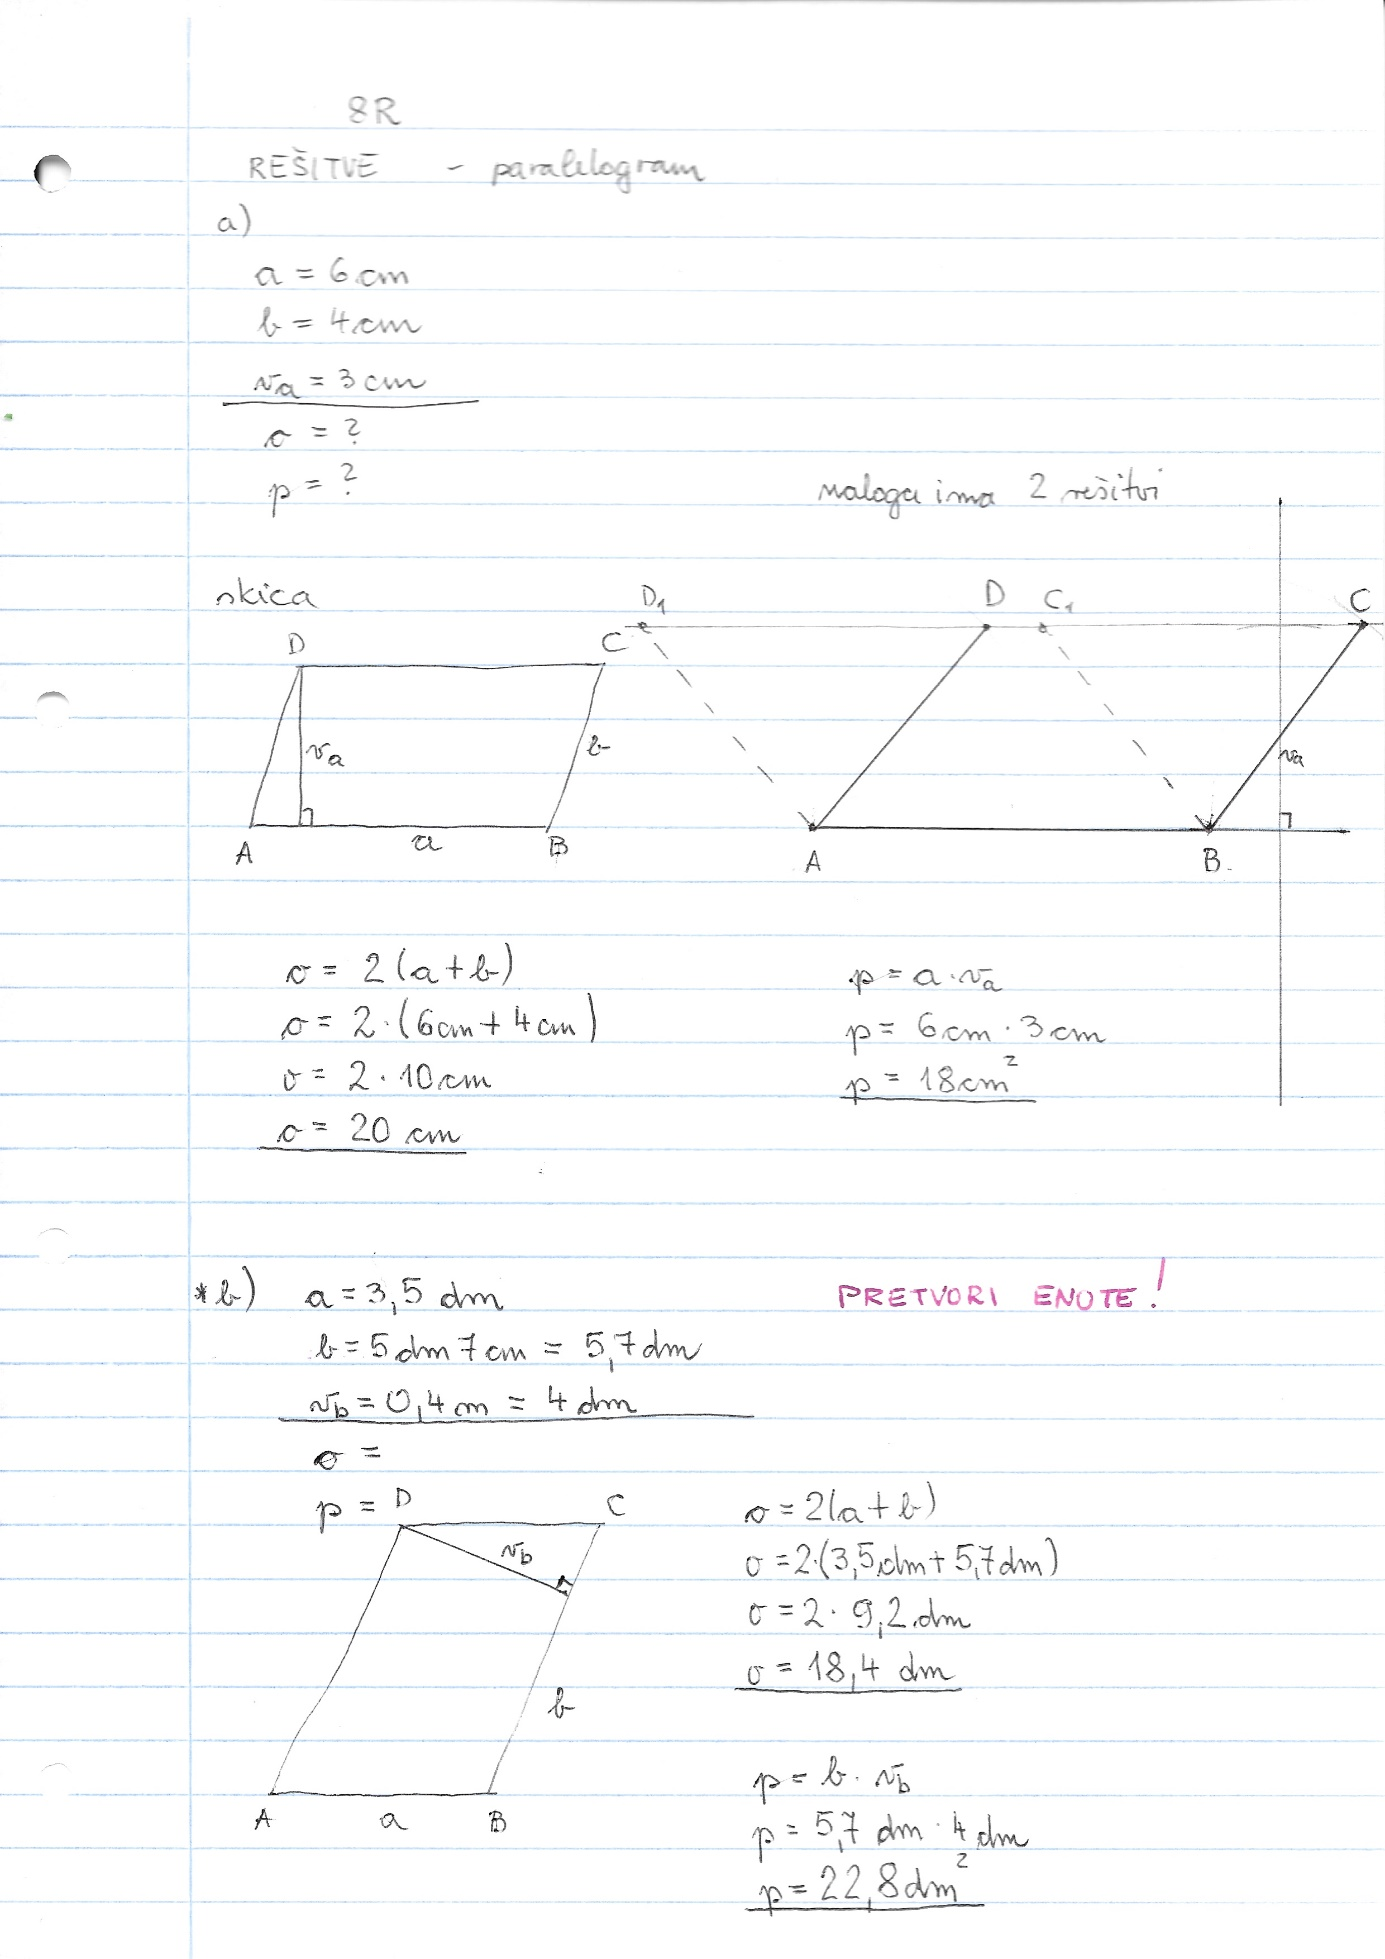 8R
REŠITVE - paralelogram
a)
a = 6 cm
b = 4 cm
va = 3 cm
o = ?
p = ?
naloga ima 2 rešitvi
skica
D
C
va
b
A
a
B
D1
D
C1
C
va
A
B
o = 2(a+b)
o = 2·(6cm + 4cm)
o = 2·10cm
o = 20 cm
p = a·va
p = 6cm·3cm
p = 18cm²
*b) a = 3,5 dm
PRETVORI ENOTE!
b = 5dm 7cm = 5,7dm
vb = 0,4m = 4 dm
o =
p =
D
C
vb
b
A
a
B
o = 2(a+b)
o = 2·(3,5dm + 5,7dm)
o = 2·9,2dm
o = 18,4 dm
p = b·vb
p = 5,7 dm·4 dm
p = 22,8dm²